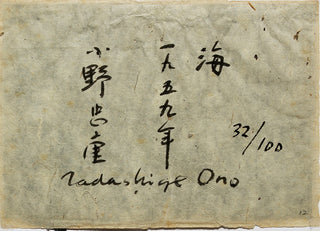 海
一九五九年
小野忠重
32/100
Tadashige Ono
12